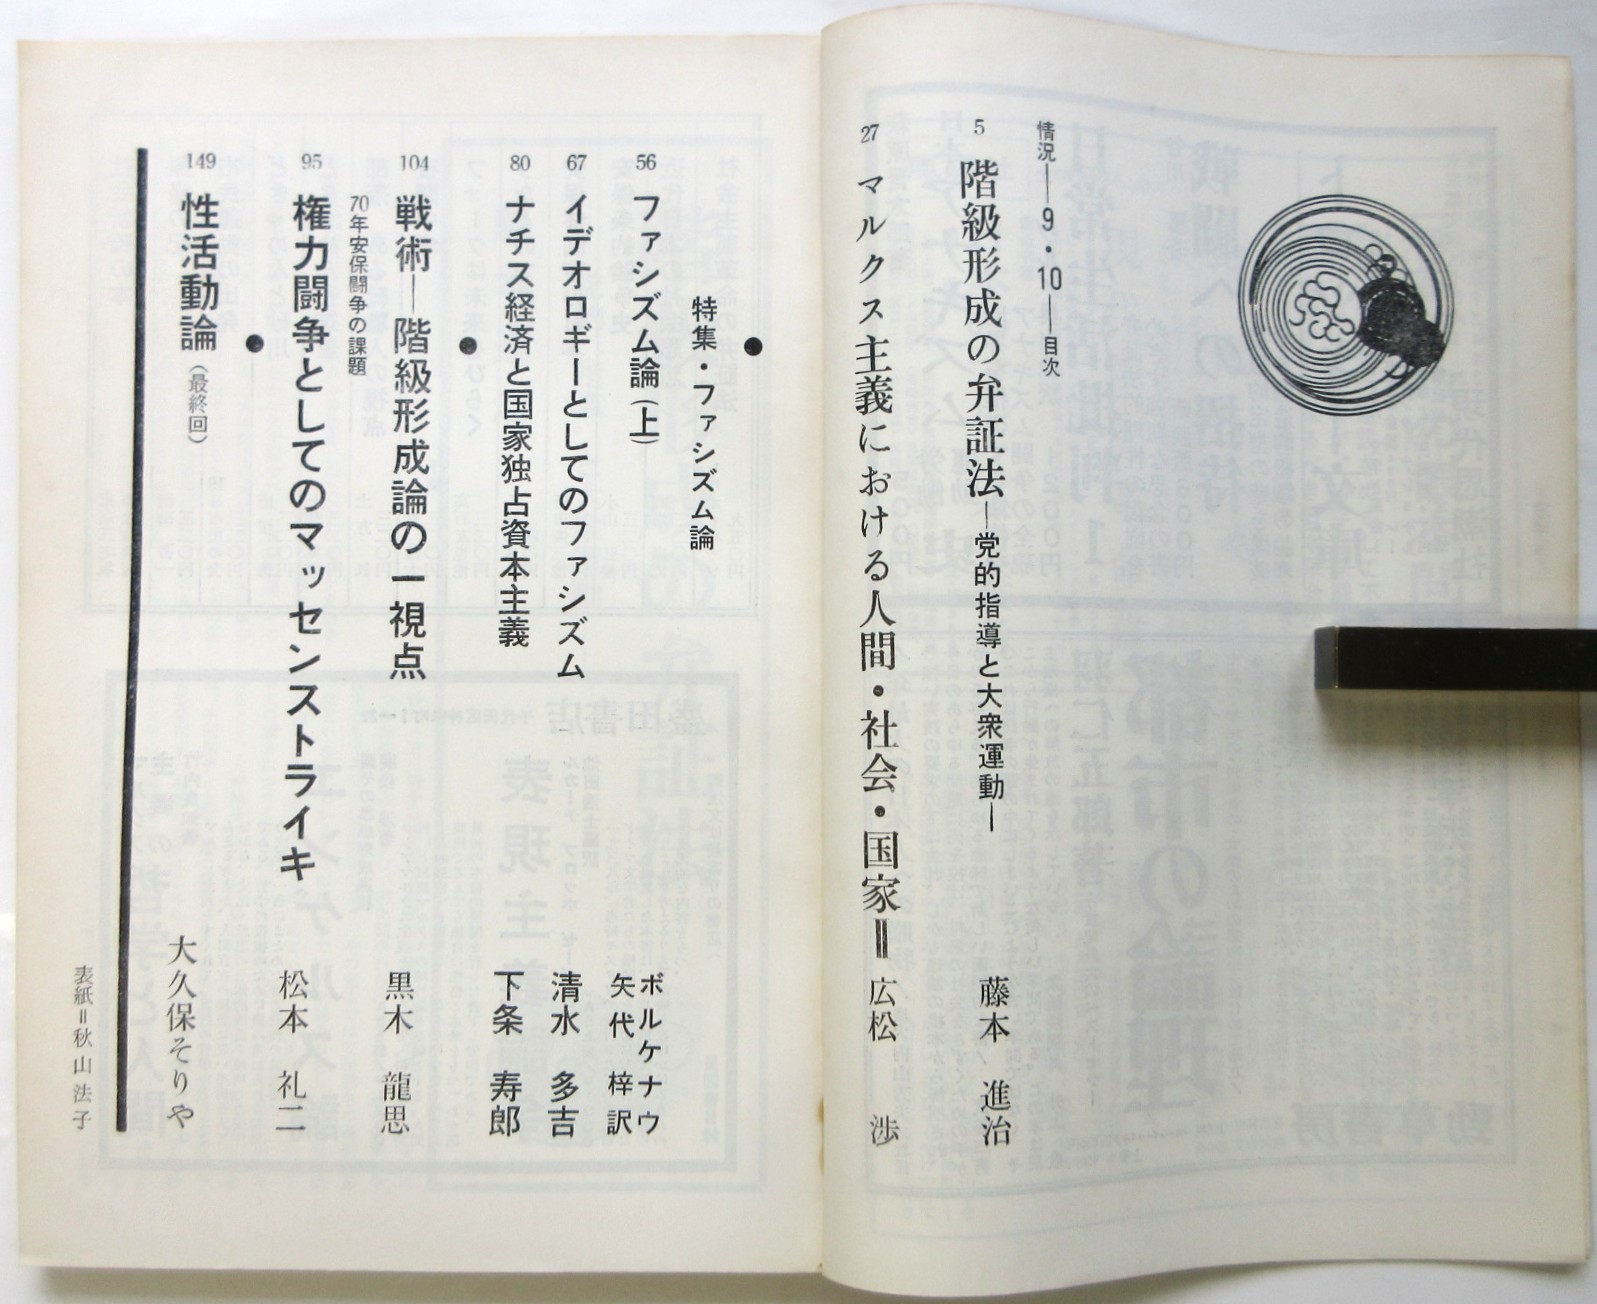 情況―9・10―目次
5 階級形成の弁証法―党的指導と大衆運動― 藤本 進治
27 マルクス主義における人間・社会・国家Ⅱ 広松 渉
特集・ファシズム論
56 ファシズム論(上) ボルケナウ
矢代 梓訳
67 イデオロギーとしてのファシズム 清水 多吉
80 ナチス経済と国家独占資本主義 下条 寿郎
104 戦術―階級形成論の一視点 黒木 龍思
70年安保闘争の課題
95 権力闘争としてのマッセンストライキ 松本 礼二
149 性活動論(最終回) 大久保そりや
表紙=秋山法子